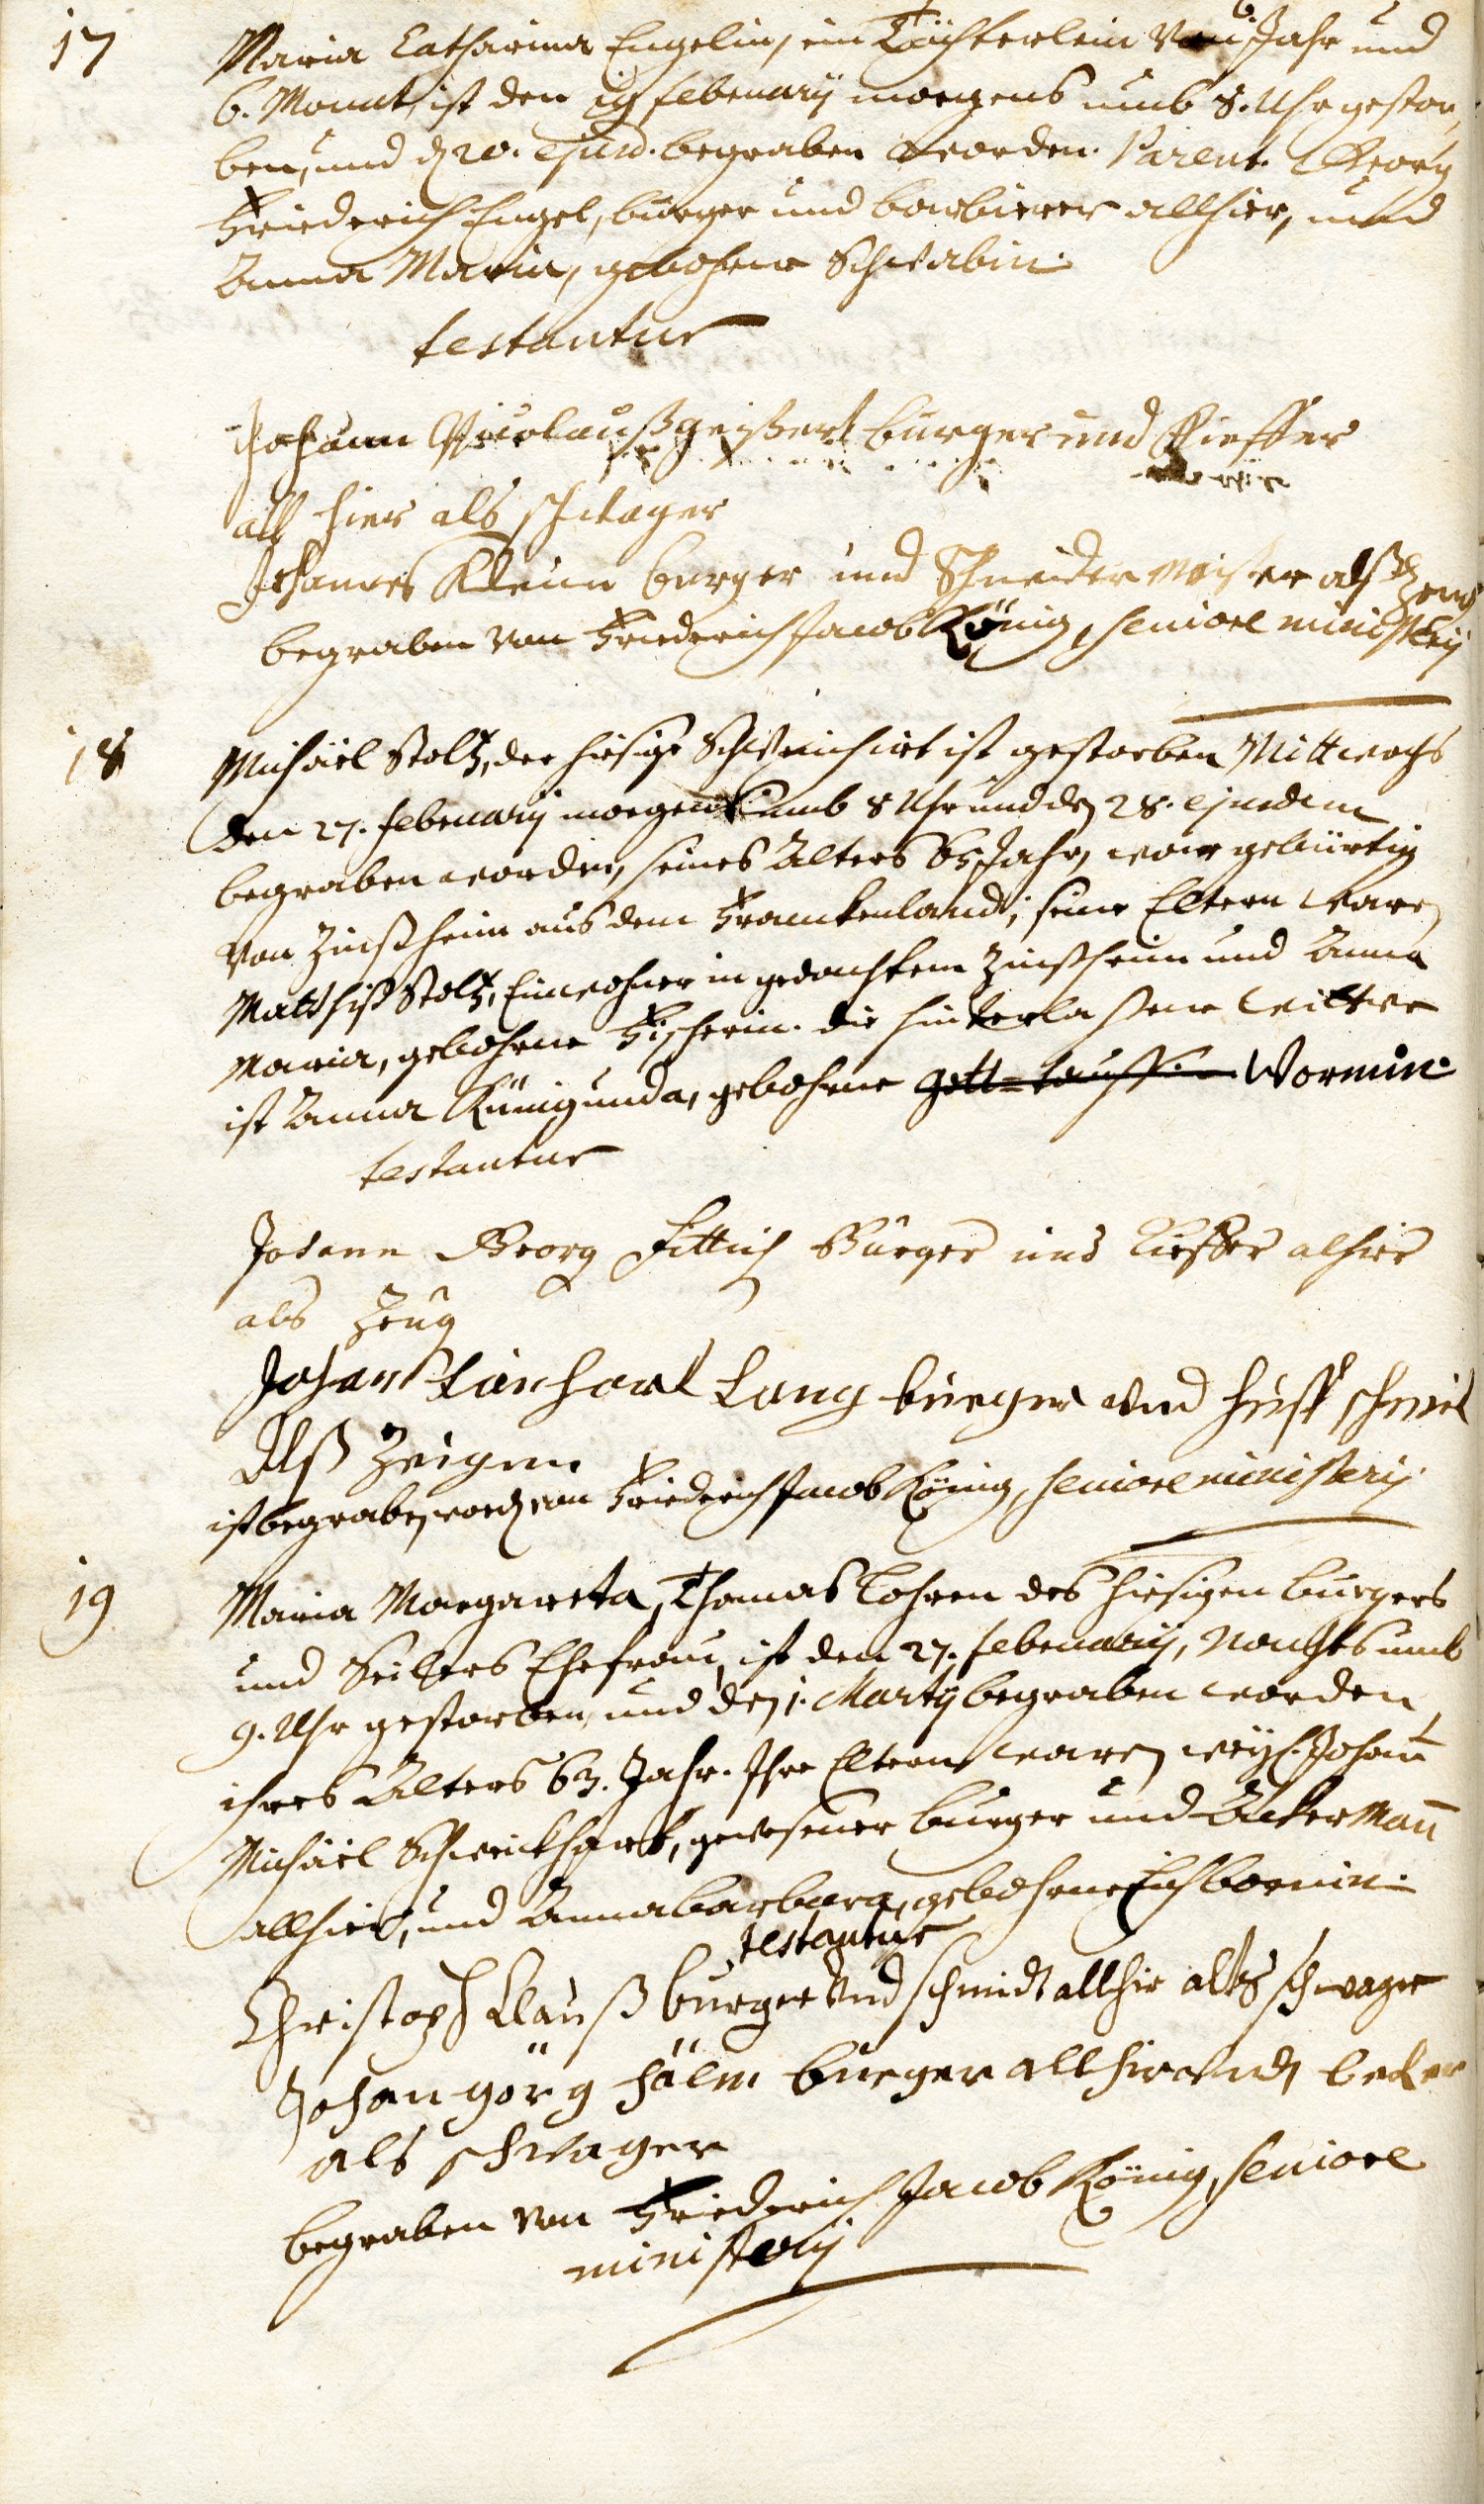 17
Maria Catharina Engelin, ein Töchterlein von 6. Jahr und
6. Monat, ist den 19 februarij morgens umb 8. Uhr gestor,
ben, und d 20. ejusd. begraben worden. Parent. Georg
Friederich Engel, burger und barbierer allhier, und
Anna Maria, gebohrne Schwabin.
testantur
Johann Nicolauß geißert burger und Kieffer
all hier als schwager
Johannes Klein burger und Schneider meister alß Zeug
begraben von Friederich Jacob König, seniore ministerij
18
Michäel Stoltz, der hiesige Schweinhirt ist gestorben Mittwochs
den 27. februarij morgens umb 8 Uhr und den 28. ejusdem
begraben worden, seines Alters 65 Jahr, war gebürtig
von Zinßheim aus dem Franckenland; seine Eltern waren
Matthiß Stoltz, Einwohner in gedachtem Zinßheim und Anna
Maria, gebohrne Fischerin. die hinterlaßene Wittwe
ist Anna Künigunda, gebohrne Wormin.
testantur
Johann Georg Fittich Bürger und Kieffer alhier
als Zeug
Johan Lienhart Lang burger und huff schmit
Alß Zeigen
ist begraben word von Friederich Jacob König, seniore ministerij.
19
Maria Margareta, Thomas Lohren des hiesigen burgers
und Seilers Ehefrau, ist den 27. februarij, Nachts umb
9. Uhr gestorben und den 1. Martij begraben worden,
ihres Alters 63. Jahr. Ihre Eltern waren weyl. Johann
Michäel Schweickhart, gewesener burger und Ackermañ
allhier, und Anna barbara, gebohrne Eichbornin.
testantur
Christoph Clauß burger und schmidt allhir alß schwager
Johan görg hälm burger allhir und beker
als schwager
begraben von Friederich Jacob König, seniore
ministerij